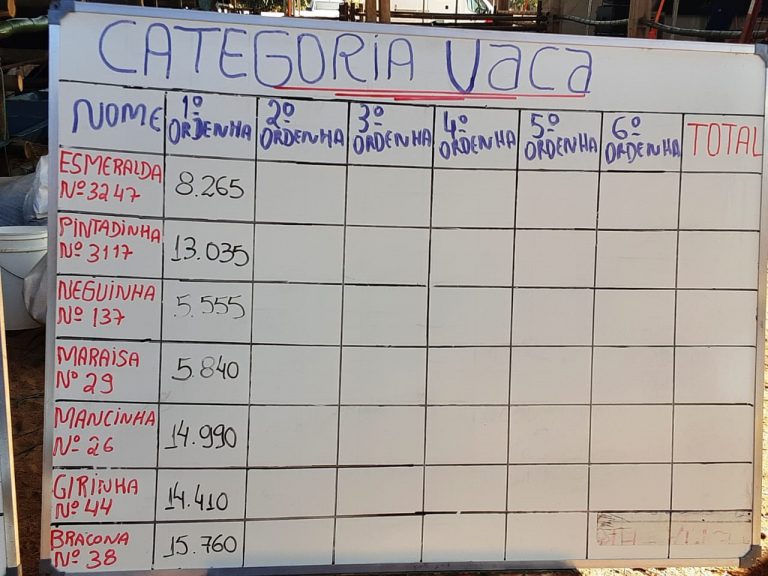 CATEGORIA VACA
NOME 1º ORDENHA 2º ORDENHA 3º ORDENHA 4º ORDENHA 5º ORDENHA 6º ORDENHA TOTAL
ESMERALDA Nº 3247 8.265
PINTADINHA Nº 3117 13.035
NEGUINHA Nº 137 5.555
MARAISA Nº 29 5.840
MANCINHA Nº 26 14.990
GIRINHA Nº 44 14.410
BRACONA Nº 38 15.760